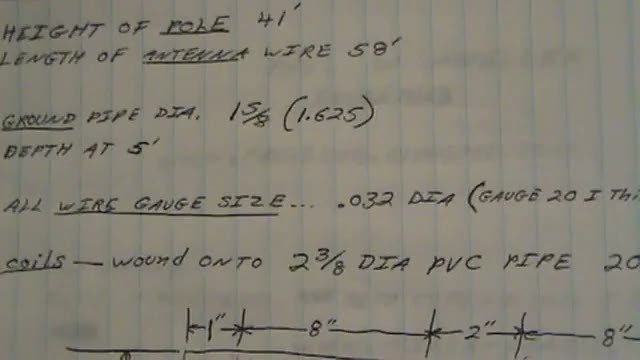 HEIGHT OF POLE 41'
LENGTH OF ANTENNA WIRE 58'
GROUND PIPE DIA. 1 5/8 (1.625)
DEPTH AT 5'
ALL WIRE GAUGE SIZE... .032 DIA (GAUGE 20 I
COILS — WOUND ONTO 2 3/8 DIA PVC PIPE 20
1" 8" 2" 8"